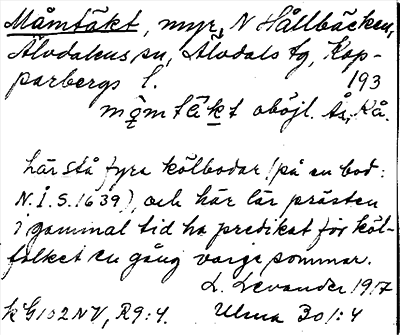 Måmtäkt, myr, N Hållbäcken,
Älvdalens sn, Älvdals tg, Kop-
parbergs l. 193
må̤mtäkt oböjl. Ås, Kå.
här stå fyra kölbodar (på en bod:
N.I.S. 1639), och här lär prästen
i gammal tid ha predikat för köl-
folket en gång varje sommar.
L. Levander 1917
kG102NV, R9:4. Ulma 301:4